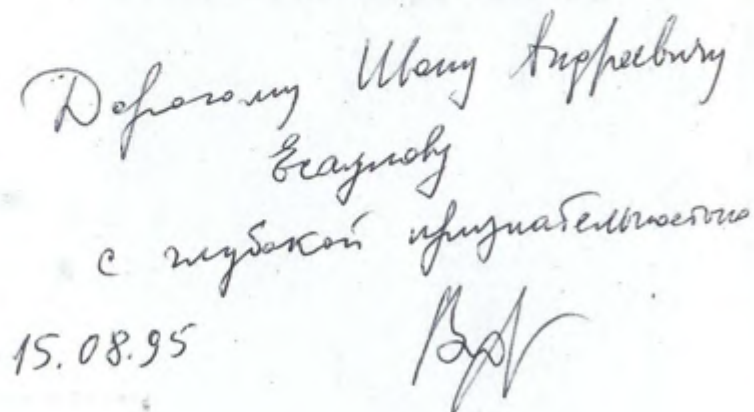 Дорогому Ивану Андреевичу
Есаулову
с глубокой признательностью
15.08.95